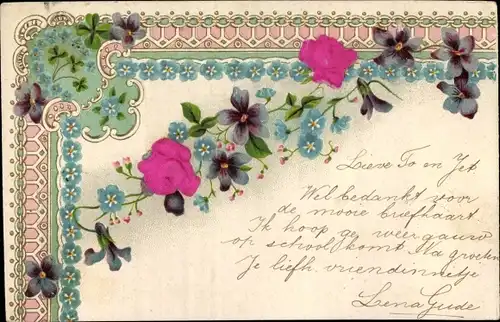 Lieve To en Jet
Wel bedankt voor
de mooie briefkaart
Ik hoop ge weer gauw
op school komt Na groeten
Je liefh. vriendinnetje
Lena Gude